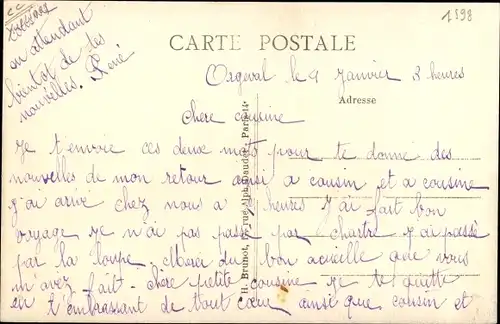 1598
en attendant
bientot de tes
nouvelles. René
CARTE POSTALE
Orgeval le 4 Janvier 3 heures
Adresse
chere cousine
Je t'envoie ces deux mots pour te donne des
nouvelles de mon retour ainsi a cousin et a cousine
J'ai arive chez nous a heures J'ai fait bon
voyage Je n'ai pas passé par chartre J'ai passé
par la loupe. Merci du bon accueille que vous
m'avez fait. chère petite cousine Je te quitte
en t'embrassant de tout cœur ainsi que cousin et
H. Brunot, 17, rue Alph.-Daudet, Paris-14ᵉ